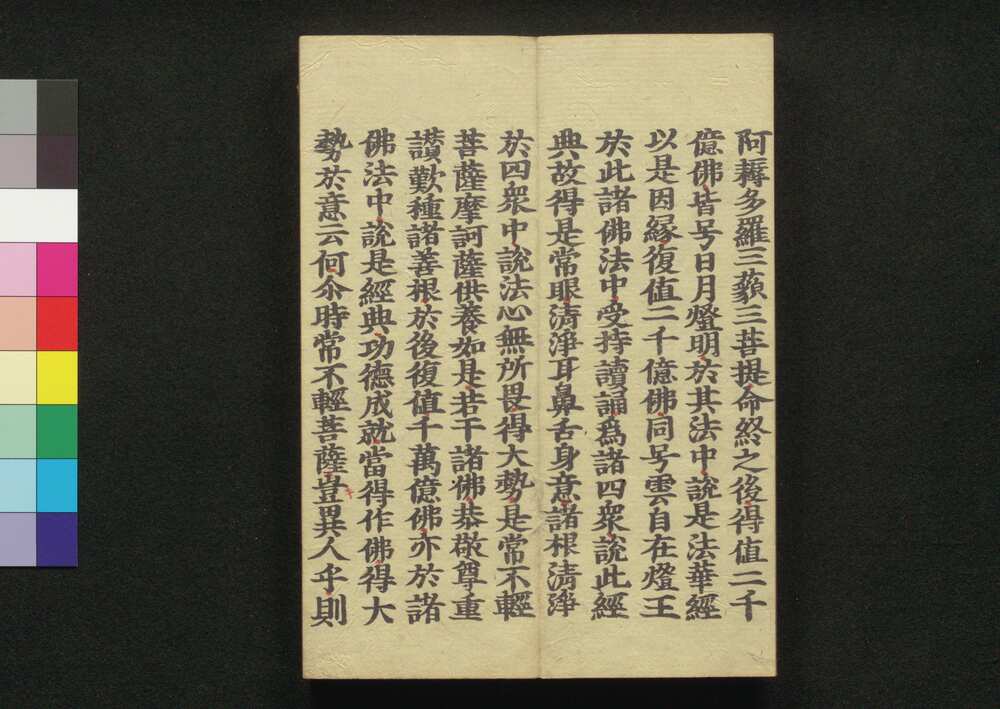 阿耨多羅三藐三菩提命終之後得值二千
億佛皆号日月燈明於其法中說是法華經
以是因緣復值二千億佛同号雲自在燈王
於此諸佛法中受持讀誦爲諸四衆說此經
典故得是常眼清淨耳鼻舌身意諸根清淨
於四衆中說法心無所畏得大勢是常不輕
菩薩摩訶薩供養如是若干諸佛恭敬尊重
讃歎種諸善根於後復值千萬億佛亦於諸
佛法中說是經典功德成就當得作佛得大
勢於意云何尒時常不輕菩薩豈異人乎則